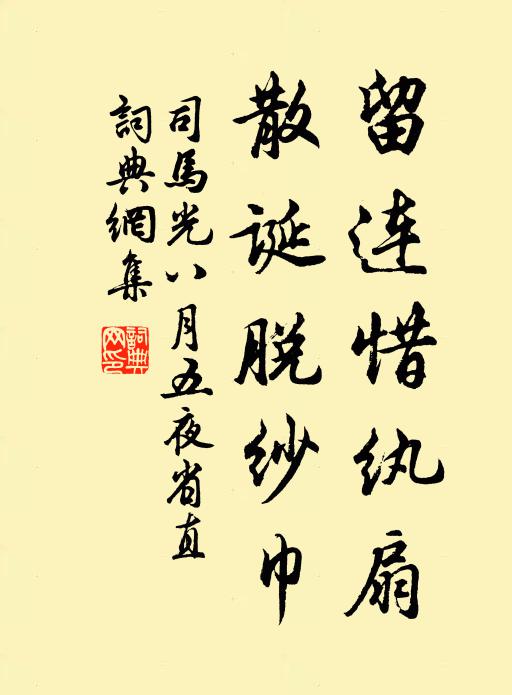 留连惜纨扇
散诞脱纱巾
司馬光八月五夜省直
詞典網集
詞典
网印